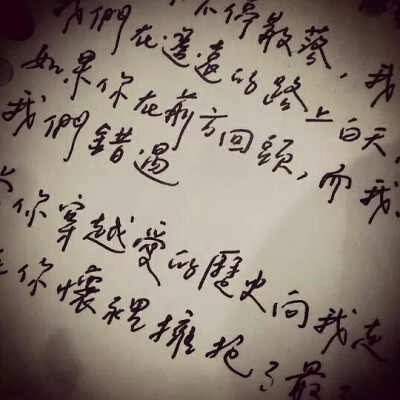 我們在不停散落,我
在遙遠的路上白天
如果你在前方回頭,而我
我們錯過
你穿越愛的歷史向我走
你懷裡擁抱了最